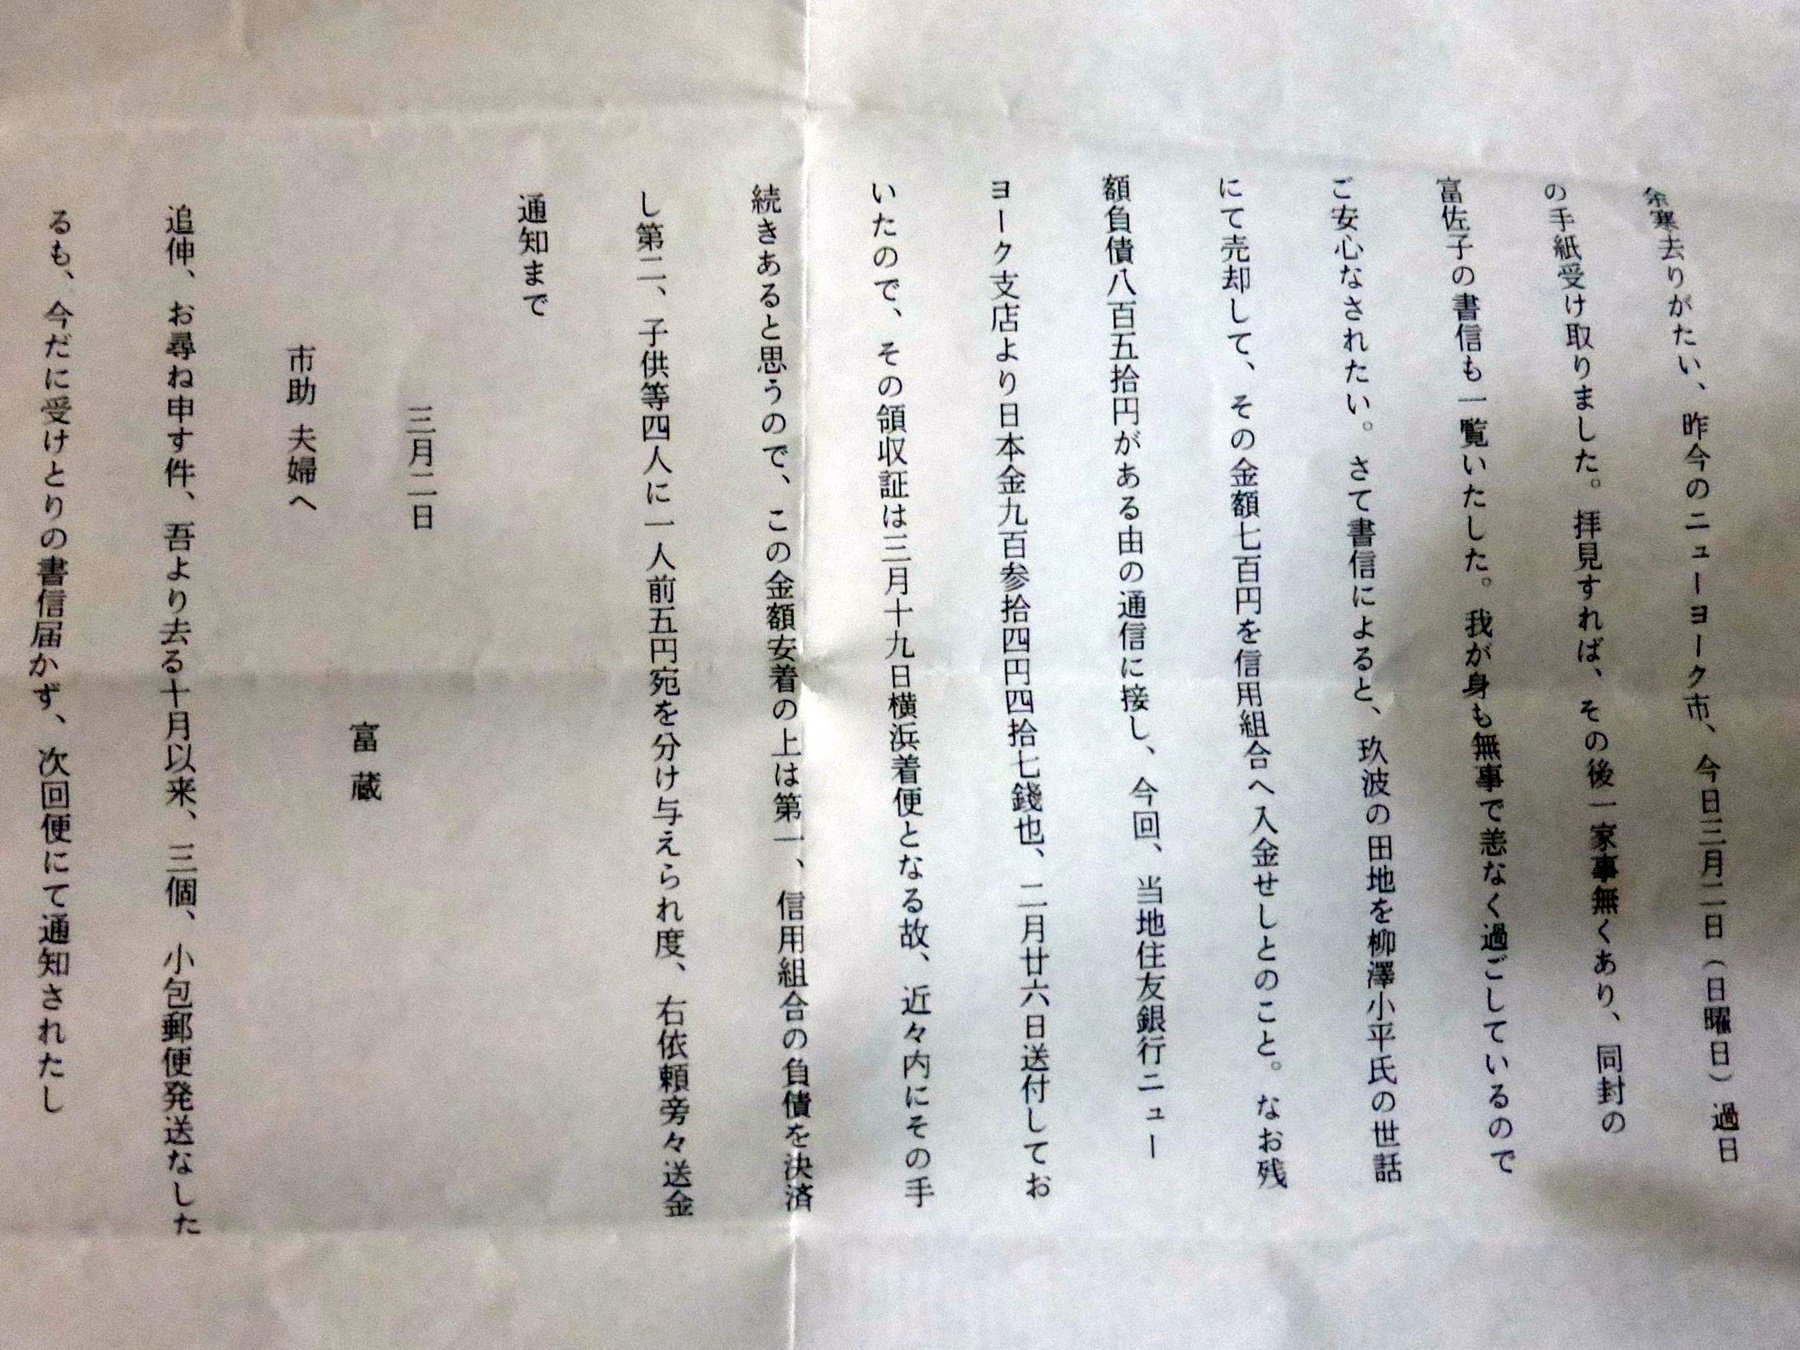 余寒去りがたい、昨今のニューヨーク市、今日三月二日(日曜日)過日
の手紙受け取りました。拝見すれば、その後一家事無くあり、同封の
富佐子の書信も一覧いたした。我が身も無事で恙なく過ごしているので
ご安心なされたい。さて書信によると、玖波の田地を柳澤小平氏の世話
にて売却して、その金額七百円を信用組合へ入金せしとのこと。なお残
額負債八百五拾円がある由の通信に接し、今回、当地住友銀行ニュー
ヨーク支店より日本金九百参拾四円四拾七錢也、二月廿六日送付してお
いたので、その領収証は三月十九日横浜着便となる故、近々内にその手
続きあると思うので、この金額安着の上は第一、信用組合の負債を決済
し第二、子供等四人に一人前五円宛を分け与えられ度、右依頼旁々送金
通知まで
三月二日
富蔵
市助 夫婦へ
追伸、お尋ね申す件、吾より去る十月以来、三個、小包郵便発送なした
るも、今だに受けとりの書信届かず、次回便にて通知されたし